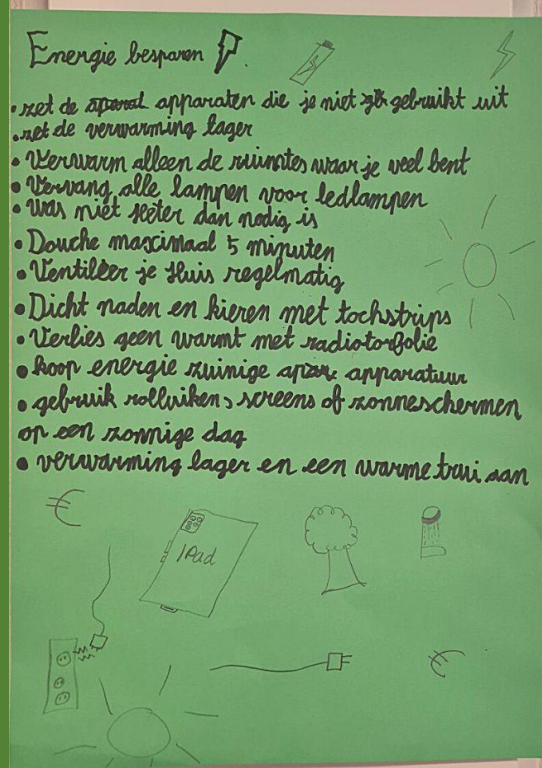 Energie besparen
• zet de apparaten die je niet gebruikt uit
• zet de verwarming lager
• Verwarm alleen de ruimtes waar je veel bent
• Vervang alle lampen voor ledlampen
• was niet heter dan nodig is
• Douche maximaal 5 minuten
• Ventileer je Huis regelmatig
• Dicht naden en kieren met tochstrips
• Verlies geen warmt met radiatorfolie
• koop energie zuinige apparatuur
• gebruik rolluiken, screens of zonneschermen
op een zonnige dag
• verwarming lager en een warme trui aan
€
IPad
€